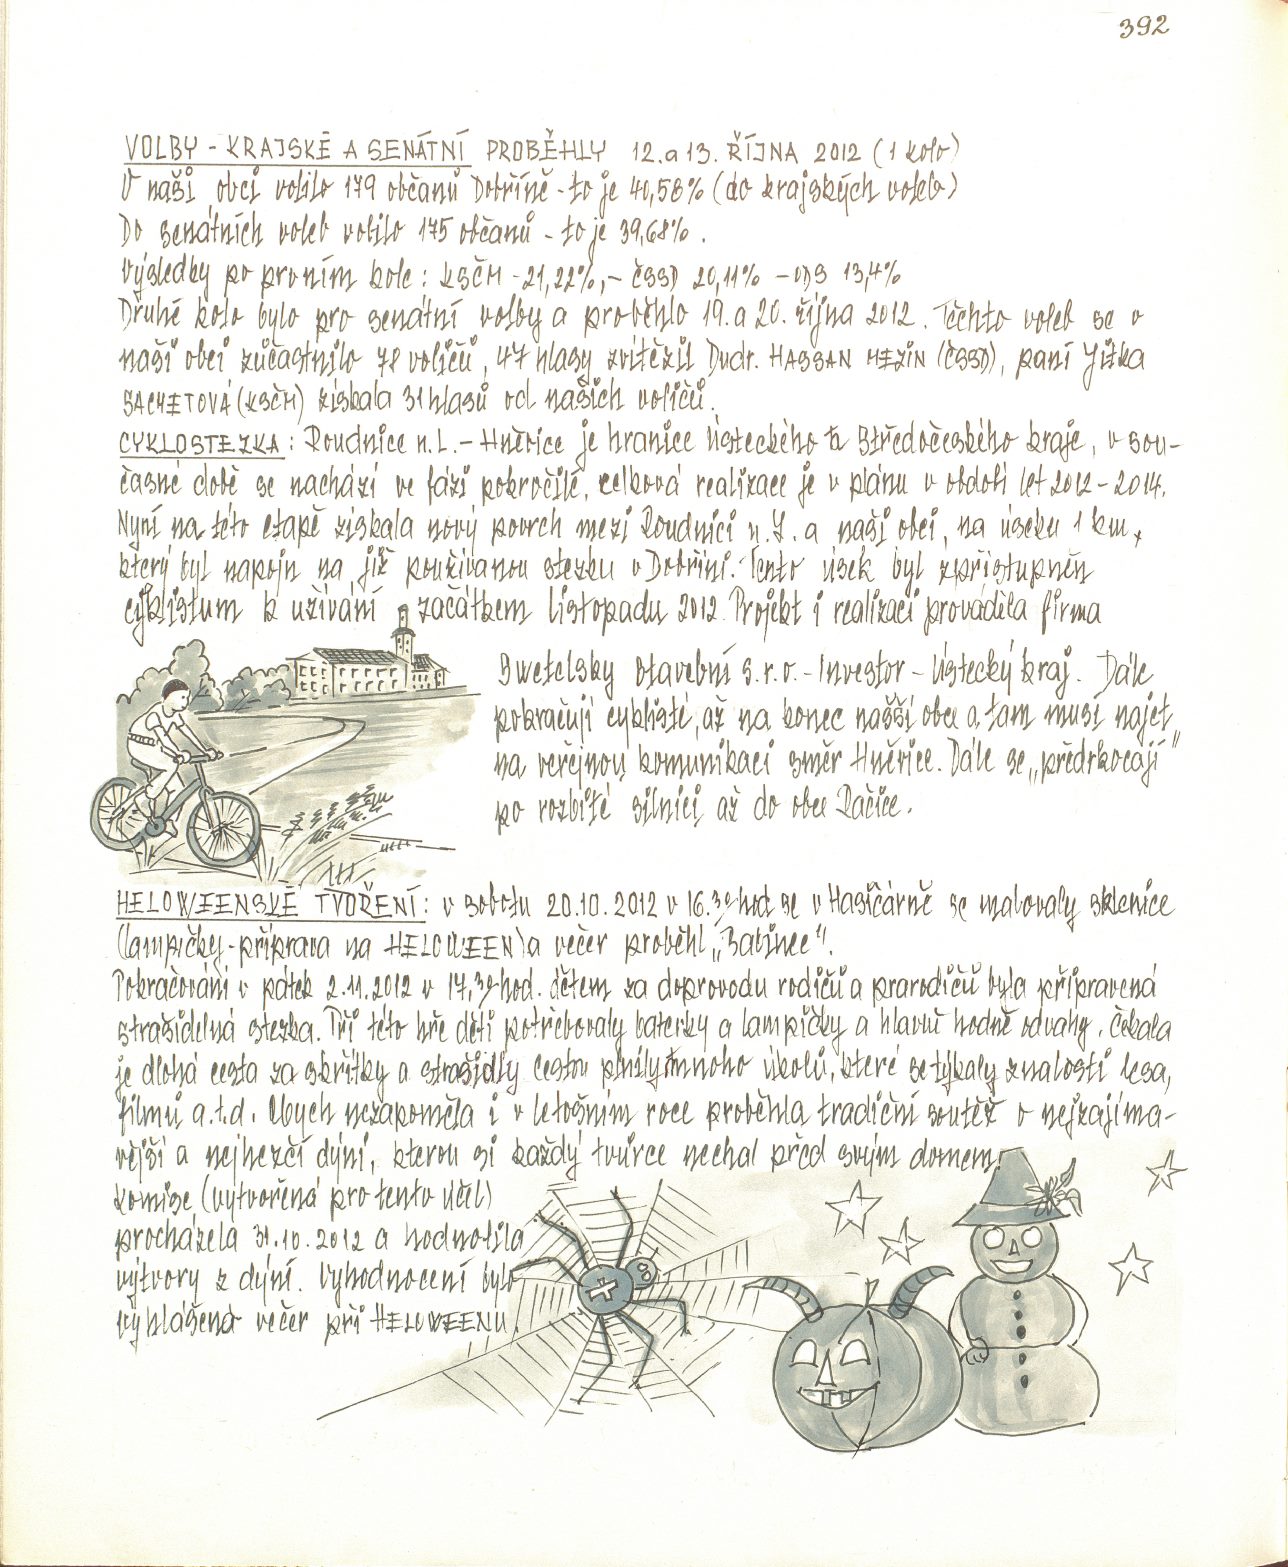 392
VOLBY - KRAJSKÉ A SENÁTNÍ PROBĚHLY 12. a 13. ŘÍJNA 2012 (1 kolo)
V naší obci volilo 179 občanů Dobříně - to je 40,58% (do krajských voleb)
Do senátních voleb volilo 175 občanů - to je 39,68%.
Výsledky po prvním kole: KSČM - 21,22%, - ČSSD 20,11% - ODS 13,4%
Druhé kolo bylo pro senátní volby a proběhlo 19. a 20. října 2012. Těchto voleb se v
naší obci zůčastnilo 78 voličů, 47 hlasy zvítězil Dudr. HASSAN MEZIN (ČSSD), paní Jitka
SACHETOVÁ (KSČM) získala 31 hlasů od našich voličů.
CYKLOSTEZKA: Roudnice n.L. - Hněvice je hranice Ústeckého a Středočeského kraje, v sou-
časné době se nachází ve fázi pokročilé, celková realizace je v plánu v období let 2012 - 2014.
Nyní na této etapě získala nový povrch mezi Roudnicí n.L. a naší obcí, na úseku 1 km,
který byl napojn na již používanou stezku v Dobříni. Tento úsek byl zpřístupněn
cyklistum k užívání začátkem listopadu 2012. Projekt i realizaci prováděla firma
Swetelsky stavební s.r.o. - Investor - Ústecký kraj. Dále
pokračují cyklisté, až na konec našší obce a tam musí najet
na veřejnou komunikaci směr Hněvice. Dále se „předrkocají"
po rozbité silnici až do obce Račice.
HELOWEENSKÉ TVOŘENÍ: v sobotu 20.10.2012 v 16.30 hod se v Hasičárně se malovaly sklenice
(lampičky - příprava na HELOWEEN) a večer proběhl „Babinec".
Pokračování v pátek 2.11.2012 v 17,30 hod. dětem za doprovodu rodičů a prarodičů byla připravená
strašidelná stezka. Při této hře děti potřebovaly baterky a lampičky a hlavně hodně odvahy. Čekala
je dlohá cesta za skřítky a strašidly cestou plnily mnoho úkolů, které se týkaly znalostí lesa,
filmů a.t.d. Abych nezapoměla i v letošním roce proběhla tradiční soutěž o nejzajíma-
vější a nejhezčí dýni, kterou si každý tvůrce nechal před svým domem.
Komise (vytvořená pro tento účel)
procházela 31.10.2012 a hodnotila
výtvory z dýní. Vyhodnocení bylo
vyhlášena večer při HELOWEENU.